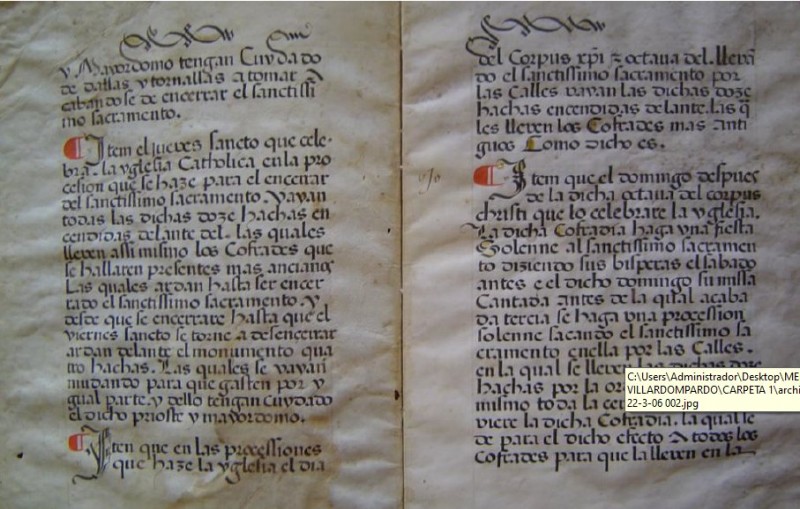 y Mayordomo tengan Cuydado
de dallas y tornallas a tomar
cabandose de encerrar el sanctissi
mo sacramento.
Item el jueves sancto que cele-
bra. la yglesia Catholica en la pro
cesion que se haze para el encerrar
del sanctissimo sacramento. Vayan
todas las dichas doze hachas en
cendidas delante del. las quales
lleven assi mismo los Cofrades que
se hallaren presentes mas ancianos
Las quales ardan hasta ser encer
rado el sanctissimo sacramento. Y
desde que se encerrare hasta que el
viernes sancto se torne a desencerrar
ardan delante el monumento qua
tro hachas. Las quales se vayan
mudando para que gasten por y
gual parte. y dello tengan Cuydado
el dicho prioste y mayordomo.
Iten que en las processiones
que haze la yglesia el dia
del Corpus xpi z octava del. lleván
do el sanctissimo sacramento por
las Calles vayan las dichas doze
hachas encendidas delante. las q̃
les lleven los Cofrades mas anti
guos Como dicho es.
Item que el domingo despues
de la dicha octava del corpus
christi que lo celebrare la yglesia.
La dicha Cofradia haga una fiesta
Solenne al sanctissimo sacramen
to diziendo sus bisperas el sabado
antes e el dicho domingo su missa
Cantada antes de la qual acaba
da tercia se haga una procession
solenne sacando el sanctissimo sa
cramento en ella por las Calles.
en la qual se lleven las dichas doze
hachas por la
mismo toda la
viere la dicha Cofradia. la qual le
de para el dicho efecto A todos los
Cofrades para que la lleven en la
C:\Users\Administrador\Desktop\ME
VILLARDOMPARDO\CARPETA 1\archi
22-3-06 002.jpg